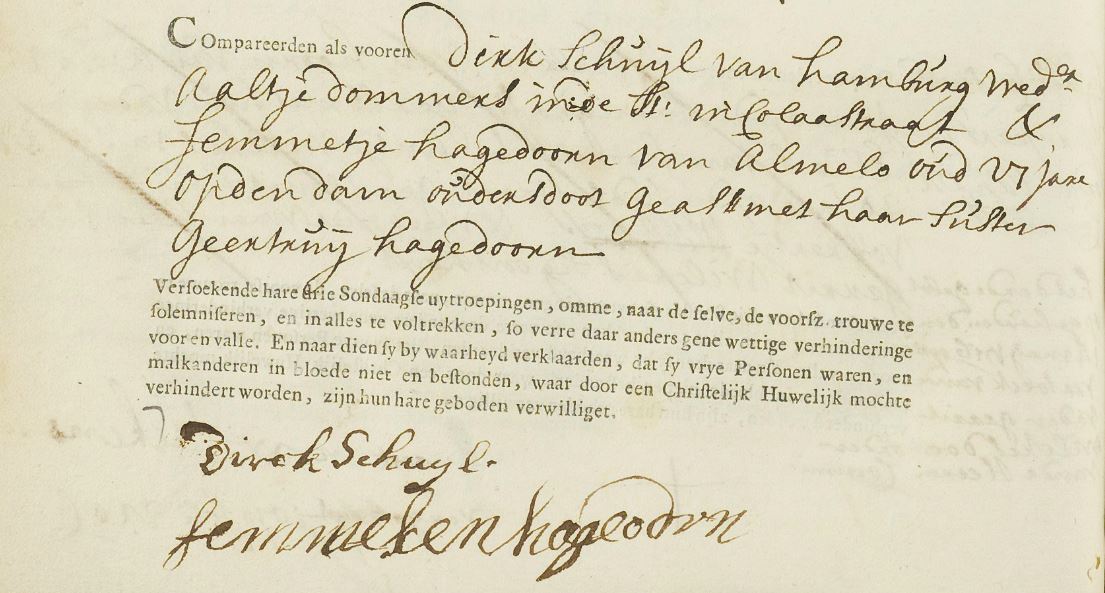 Compareerden als vooren Dirk Schuijl van hamburg wedr
Aaltje dommers in de St: nicolaastraat &
femmetje hagedoorn van Almelo oud 27 jare
op den dam ouders doot geast met haar suster
Geertruij hagedoorn
Versoekende hare drie Sondaagse uytroepingen, omme, naar de selve, de voorsz. trouwe te
solemniseren, en in alles te voltrekken, so verre daar anders gene wettige verhinderinge
voor en valle. En naar dien sy by waarheyd verklaarden, dat sy vrye Personen waren, en
malkanderen in bloede niet en bestonden, waar door een Christelijk Huwelijk mochte
verhindert worden, zijn hun hare geboden verwilliget.
Dirck Schuyl.
femmeken hageodorn